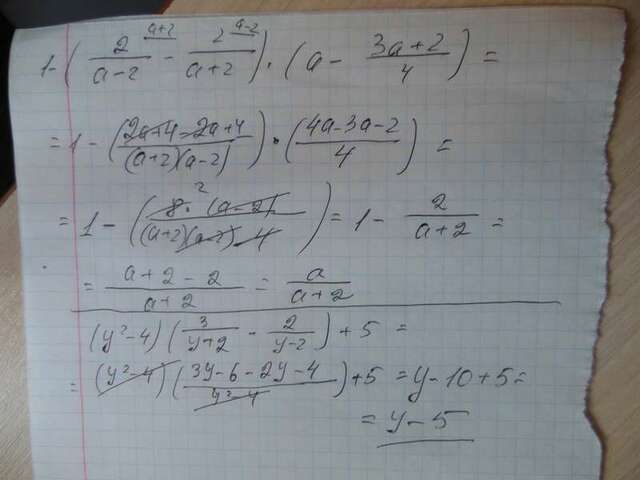 1-(2/(a-2) ^(a+2) - 2/(a+2) ^(a-2))·(a - (3a+2)/4) =
= 1 - ((2a+4-2a+4)/((a+2)(a-2)))·((4a-3a-2)/4) =
= 1 - (8 ^2·(a-2)/((a+2)(a-2)·4)) = 1 - 2/(a+2) =
= (a+2-2)/(a+2) = a/(a+2)
(y²-4)(3/(y+2) - 2/(y-2)) + 5 =
= (y²-4)((3y-6-2y-4)/(y²-4)) + 5 = y-10+5 =
= y-5